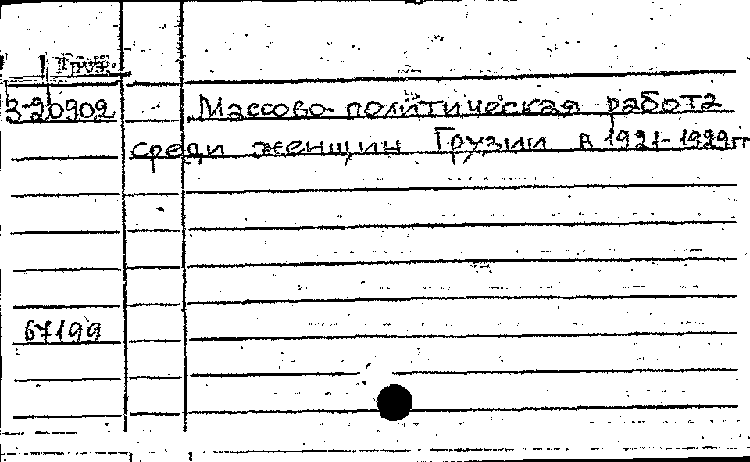 Груз.
3-20902 Массово-политическая работа
среди женщин Грузии в 1921-1929гг
67199